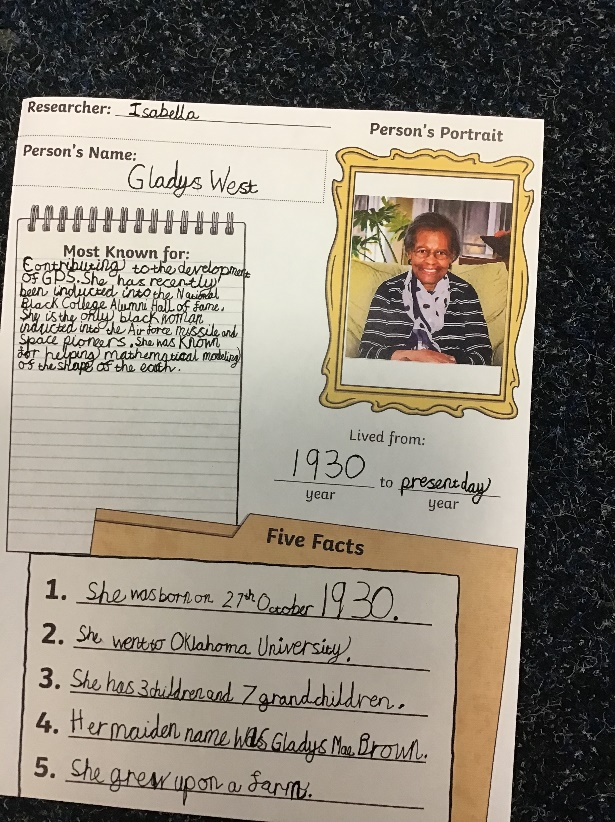 Researcher: Isabella
Person's Portrait
Person's Name:
Gladys West
Most Known for:
Contributing to the development
of GPS. She has recently
been inducted into the National
Black College Alumni Hall of Fame.
She is the only black woman
inducted into the Air force missile and
Space pioneers. She was known
for helping mathematical modeling
of the shape of the earth.
Lived from:
1930 to present day
year year
Five Facts
1. She was born on 27th October 1930.
2. She went to Oklahoma University.
3. She has 3 children and 7 grandchildren.
4. Her maiden name was Gladys Mae Brown.
5. She grew up on a farm.